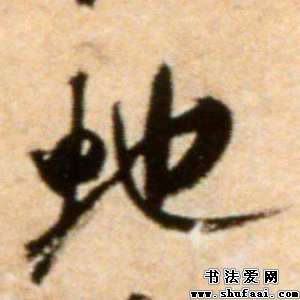 虵
书法爱网
www.shufaai.com